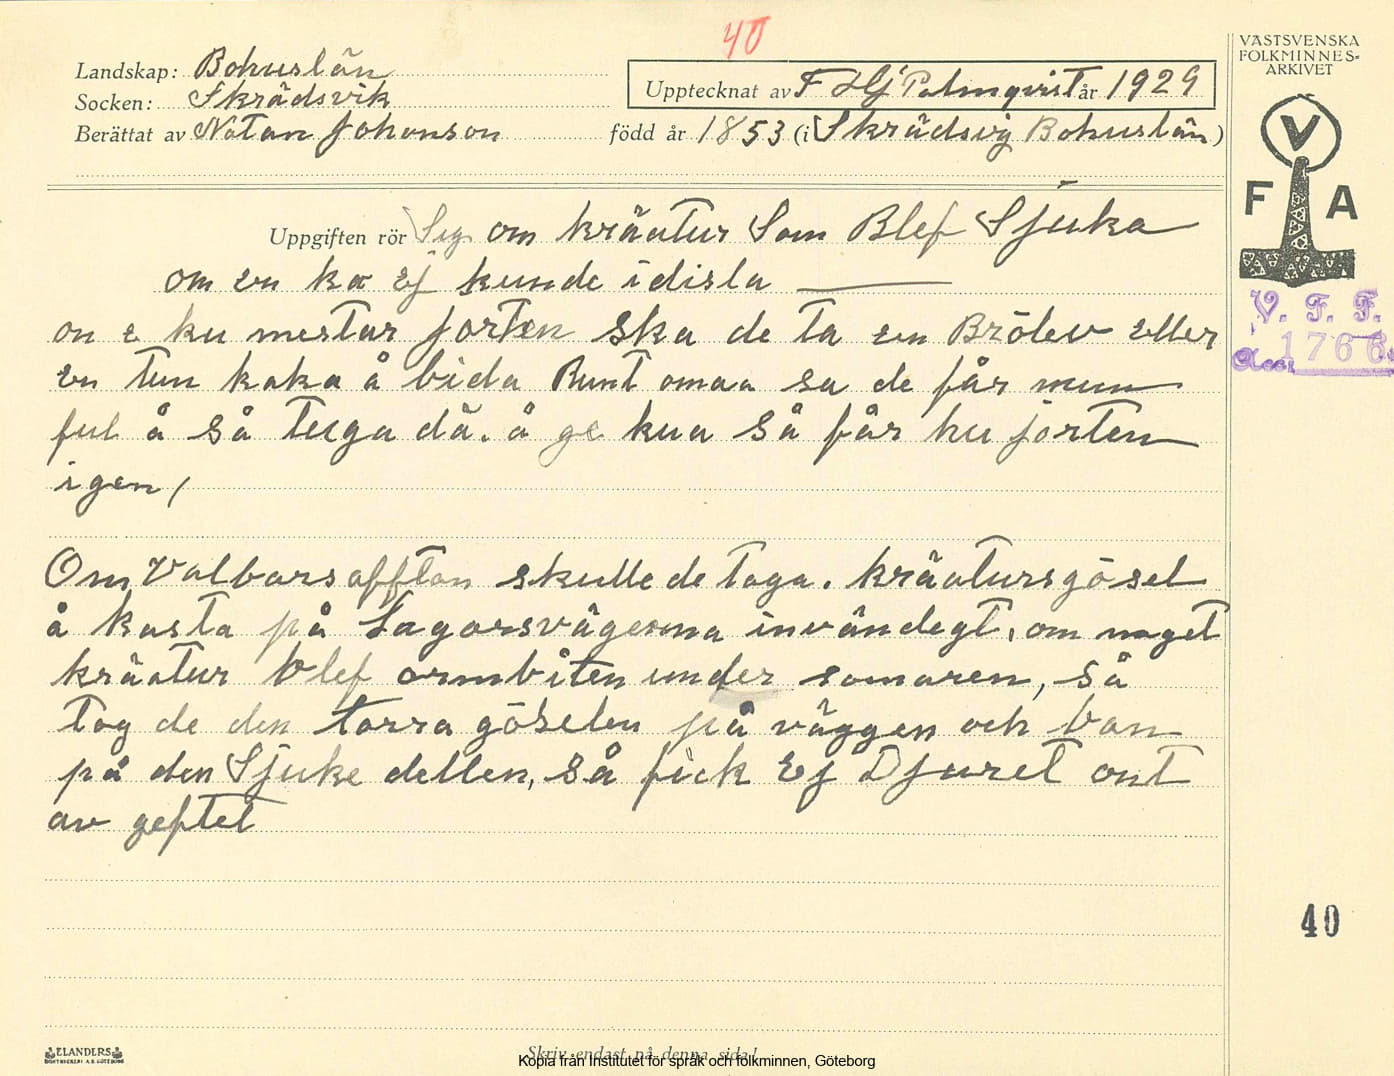 40
VÄSTSVENSKA
FOLKMINNES-
ARKIVET
V
F A
V. F. F.
Acc. 1766
Landskap: Bohuslän
Socken: Skrädsvik
Upptecknat av F Hj Palmqvist år 1929
Berättat av Natan Johanson född år 1853 (i Skrädsvig Bohuslän)
Uppgiften rör Seg om kräatur Som Blef Sjuka
om en ko Ej kunde idisla
on e ku mestar jorten ska de ta en Brölev eller
en tun kaka å bida Runt omaa sa de får mun
ful å så tuga dä. å ge kua så får hu jorten
igen
Om Valbarsaffton skulle de taga. kräatursgösel
å kasta på Lagorsvägerna invändegt, om naget
kräatur blef ormbiten under somaren, så
tog de den torra göselen på väggen och ban
på den Sjuke dellen, så fick Ej Djuret ont
av geftet
40
ELANDERS
BOKTRYCKERI A.B. GÖTEBORG
Skriv endast på denna sida!
Kopia från Institutet för språk och folkminnen, Göteborg